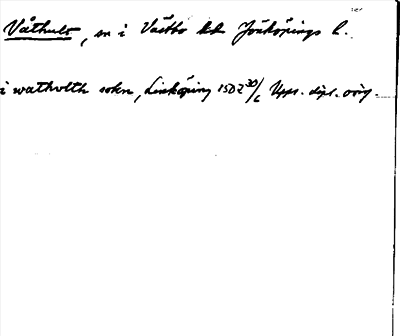 Våthult, sn i Västbo hd Jönköpings l.
i wathulth sokn, Linköping 1502 30/6 Upps. dipl. orig.